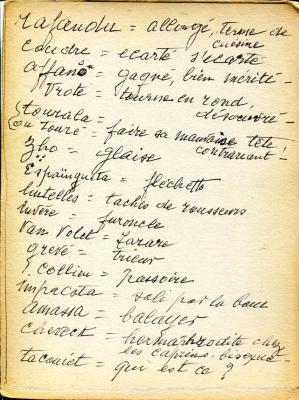 rafandu = allongé, terme de
cuisine
coudre = ecarté s'ecarte
affano = gagné, bien mérité -
Vrote = tourne en rond,
désoeuvré -
tourala =
ou touré = faire sa mauvaise tête !
contrariant !
Zho = glaise
Espainguéta = flèchette
lutelles = taches de rousseurs
nuère = furoncle
Van Volet = Zazare
grevé = trieur
collieu = passoire
impacota = sali par la boue
amassa = balayer
cheveck = hermaphrodite chez
les caprins, bisexué -
tacouiet = qui est ce ?